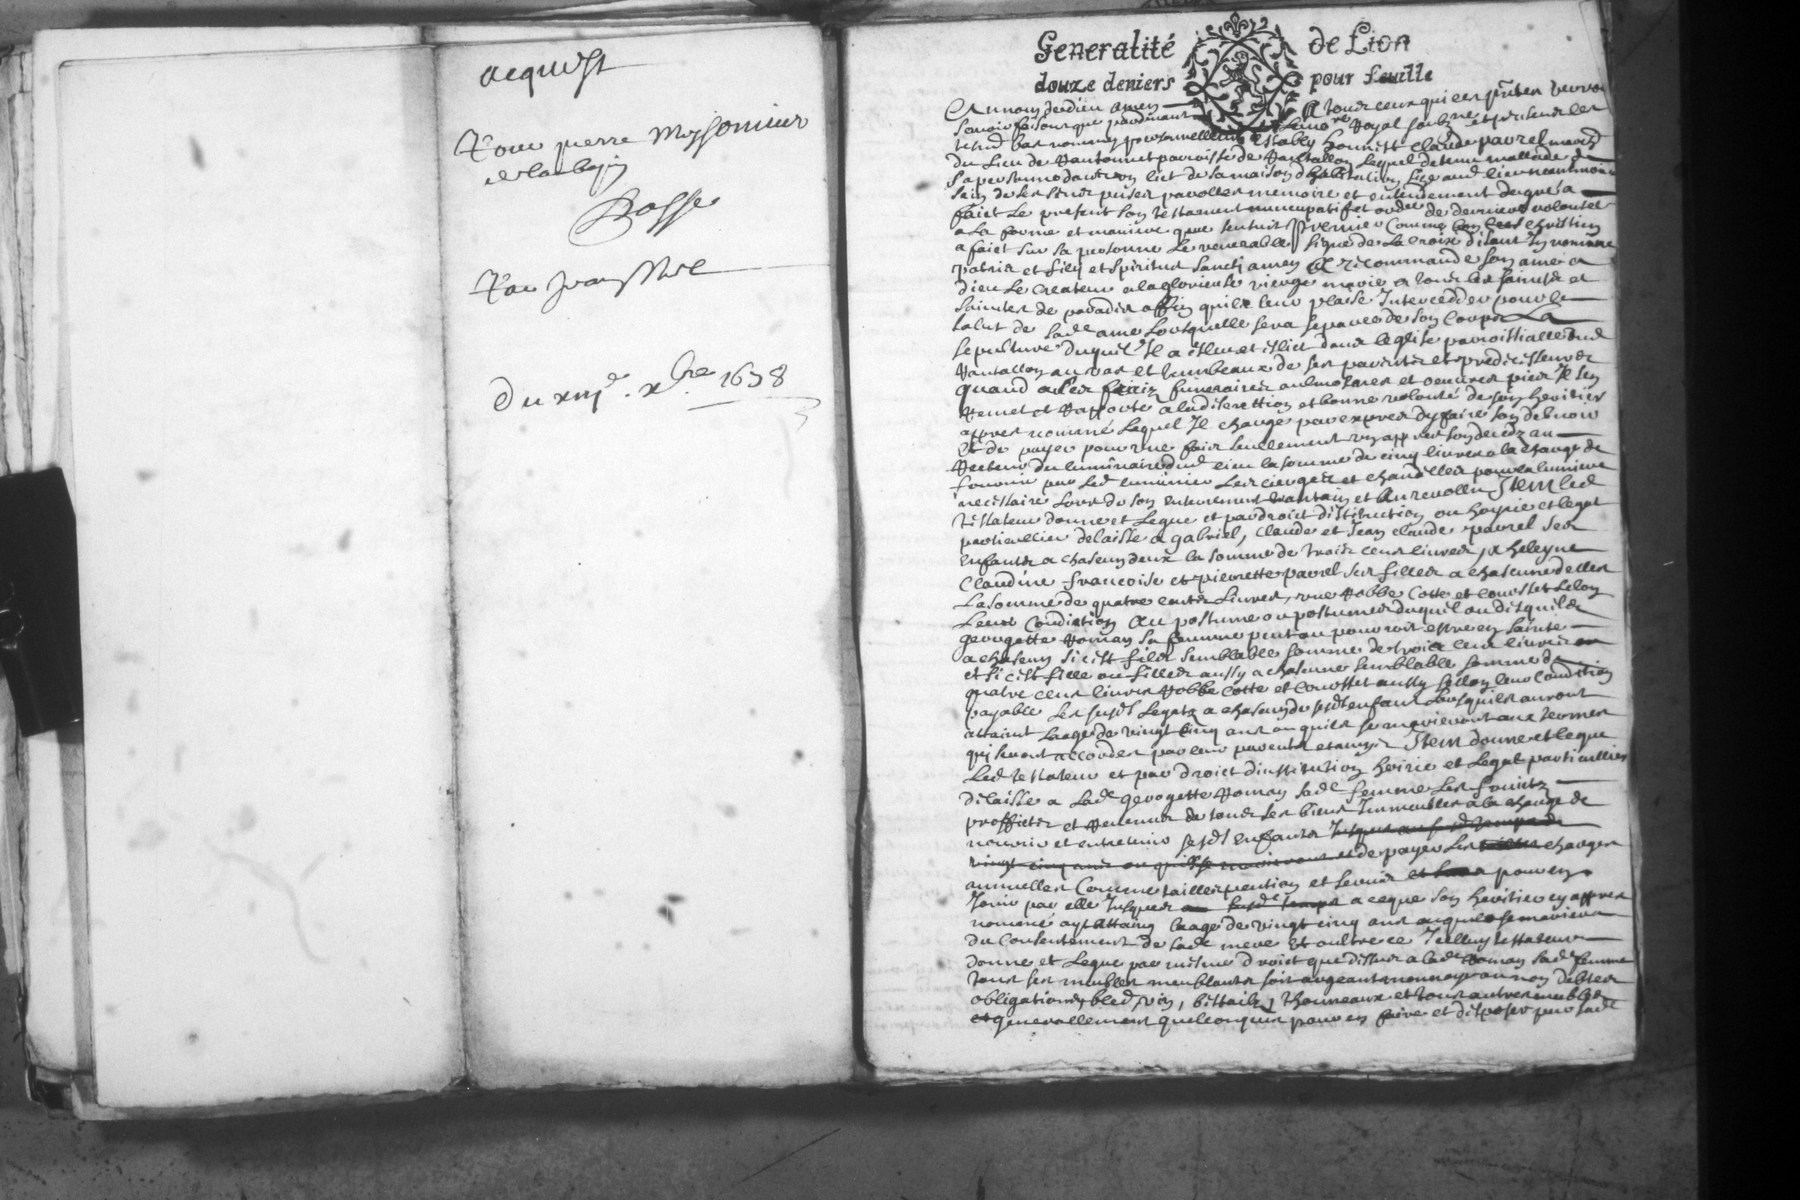 acquist
pierre
Du xiij.e xbre 1658
Generalité de Lion
douze deniers pour feuille
Au nom de dieu amen A tous ceux qui ces pntes verront
Scavoir faisons que pardevant le no.re Royal soubzné et presens les
tesmoins bas nommez personnellement estably honneste Claude pavrel march
du lieu de Hautonnet parroisse de lequel detenu mallade de
sa personne dans un lict de sa maison d'habitation size aud. lieu neantmoins
sain de ses sens puiser parolles memoire et entendement du gré a
faict le present son testament nuncupatif et ord.ce de derniere volonté
a la forme et maniere que sensuit premier Comme bon Chrestien
a faict sur sa personne le venerable signe de la croix disant In nomine
patris et filij et spiritus sancti amen A recommandé son ame a
dieu le createur a la glorieuse vierge marie a tous les saincts et
sainctes de paradis affin quils leur plaise Interceder pour le
salut de sad. ame lorsquelle sera separée de son Corps La
sepulture duquel Il a esleu et eslict dans leglise parroissialle dud.
au vas et tumbeaux de ses parents et predecesseurs
quand a les fraiz funeraires aulmosnes et oeuvres pies Il sen
remet et rapporte a la discrettion et bonne volonté de son heritier
appres nommé lequel Il charge par expres dy faire son debvoir
et de payer pour une fois seullement appres son decedz au
Recteur du luminaire dud. lieu la somme de cinq livres a la charge de
fournir par led. luminier les cierges et chandelles pour la lumiere
necessaire lors de son enterrement quarantain et Au revollu Item led.
testateur donne et legue et par droict dinstitution ou hoyrie et legat
particullier delaisse a gabriel, Claude et Jean claude pavrel ses
enfants a chascun deux la somme de trois cens livres, a heleyne
Claudine francoise et pierrette pavrel ses filles a chascune delles
La somme de quatre cents livres, une Robbe Cotte et Cousset selon
leur Condiction Au postume ou postumes duquel ou desquels
georgette Roman sa femme peut ou pourroit estre en sainte
a chascun si cest filz semblable somme de trois cens livres
et si cest fille ou filles aussy a chascune semblable somme de
quatre cens livres Robbe Cotte et Cousset aussy sellon leur Condition
payable les susd. legatz a chascun de sesd. enfans lorsquils auront
attaint laage de vingt cinq ans ou quils se marieront aux termes
qui seront accordes par leur parents et amys Item donne et legue
Led. testateur et par droict dinstitution hoirie et legat particullier
delaisse a lad. georgette Roman sad. femme les fruictz
proffictz et revenus de tous ses biens Immeubles a la charge de
nourrir et entretenir sesd. enfants jusques au susd. temps de
vingt cinq ans ou quils se et de payer les charges
annuelles Comme tailles pention et servis pour en
Jouir par elle Jusques au susd. temps a ceque son heritier cy appres
nommé ayt attaint laage de vingt cinq ans ou quil se mariera
du Consentement de sad. mere Et oultre ce Icelluy testateur
donne et legue par mesme droict que dessus a lad. Roman sad. femme
tous ses meubles meublants soit argeant monnoyé ou non debtes
obligations, bled, vin, bestailz, thonneaux et tous autres meubles
et generallement quelconques pour en faire et disposer par sad.